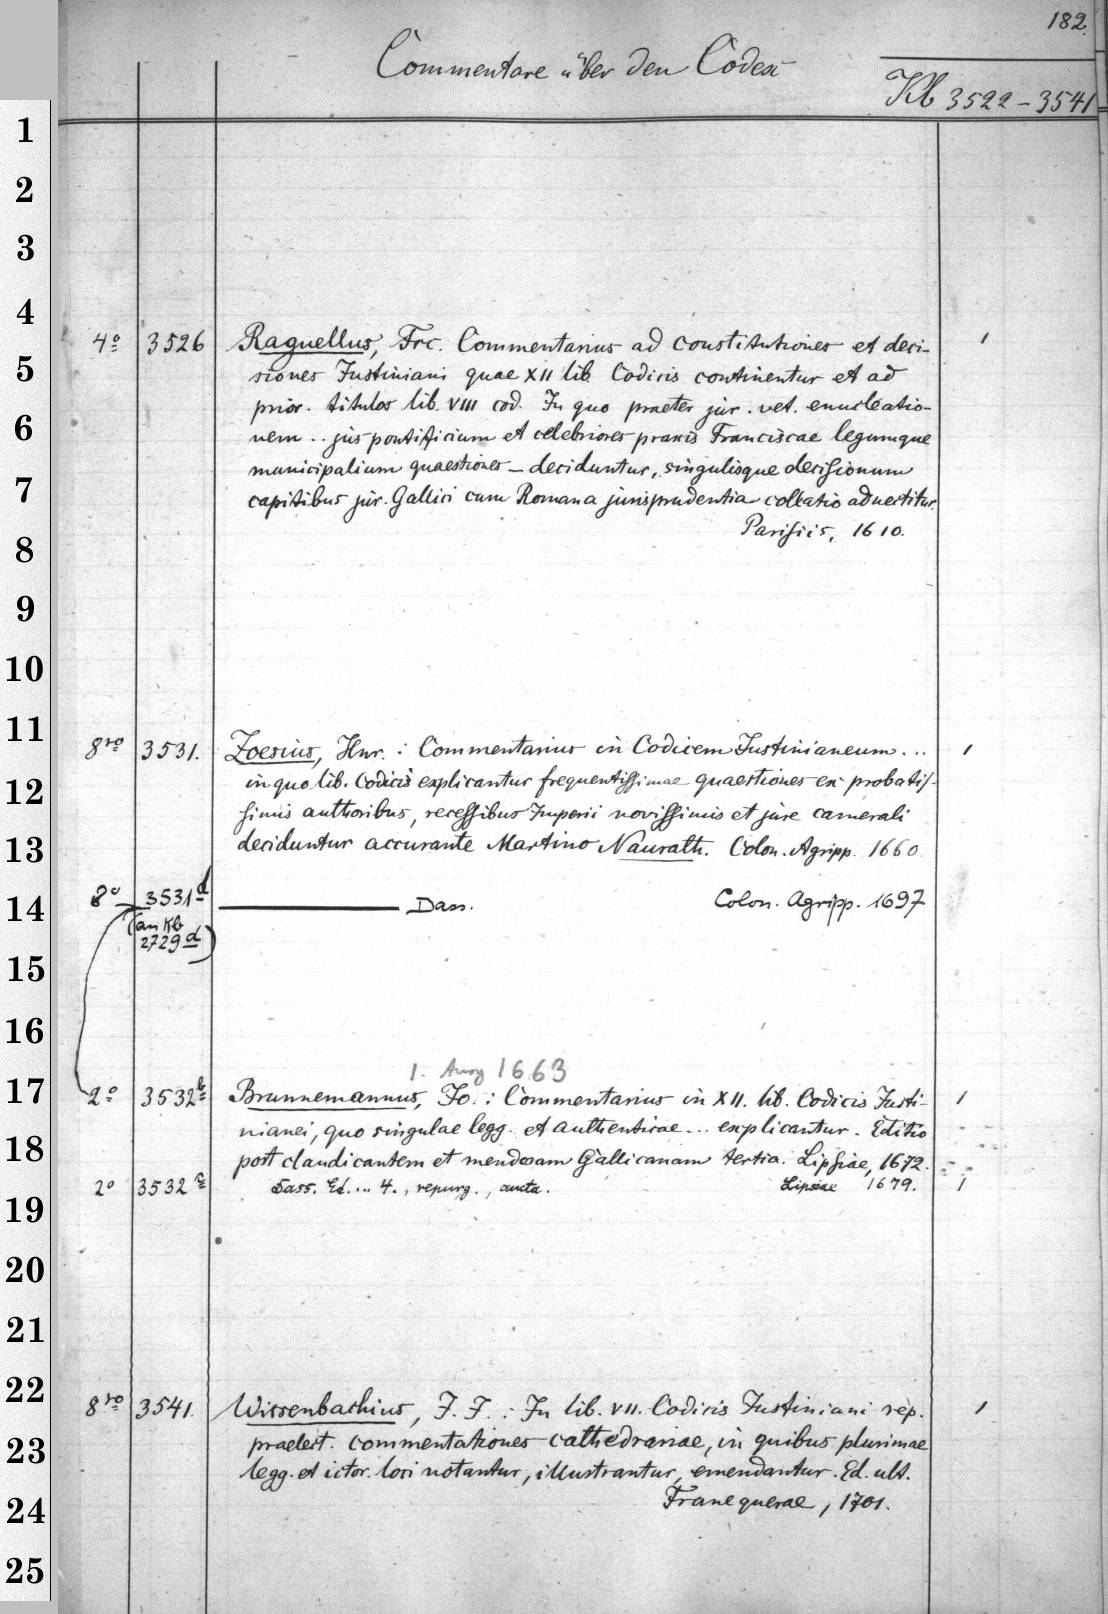 182.
Commentare über den Codex
Kb 3522 – 3541
4º 3526 Raguellus, Frc. Commentarius ad constitutiones et deci- 1
siones Justiniani quae XII lib Codicis continentur et ad
prior. titulos lib. VIII cod. In quo praeter jur. vet. enucleatio-
nem .. jus pontificium et celebriores praxis Franciscae legumque
municipalium quaestiones – deciduntur, singulisque decisionum
capitibus jur. Gallici cum Romana jurisprudentia collatio advertitur.
Parisiis, 1610.
8ro 3531. Zoesius, Hnr. : Commentarius in Codicem Justinianeum ... 1
in quo lib. Codicis explicantur frequentissimae quaestiones ex probatis-
simis authoribus, recessibus Imperii novissimis et jure camerali
deciduntur accurante Martino Naurath. Colon. Agripp. 1660
8º 3531d ——— Dass. Colon. Agripp. 1697
(an Kb
2729d)
1. Ausg 1663
2º 3532b Brunnemannus, Jo. : Commentarius in XII. lib. Codicis Justi- 1
nianei, quo singulae legg. et authenticae ... explicantur. Editio
post claudicantem et mendosam Gallicanam tertia. Lipsiae, 1672.
2º 3532c Dass. Ed. ... 4., repurg., aucta. Lipsiae 1679. 1
8ro 3541. Wissenbachius, J. J. : In lib. VII. Codicis Justiniani rep. 1
praelect. commentationes cathedrariae, in quibus plurimae
legg. et ictor. loci notantur, illustrantur, emendantur. Ed. ult.
Franequerae, 1701.
1
2
3
4
5
6
7
8
9
10
11
12
13
14
15
16
17
18
19
20
21
22
23
24
25